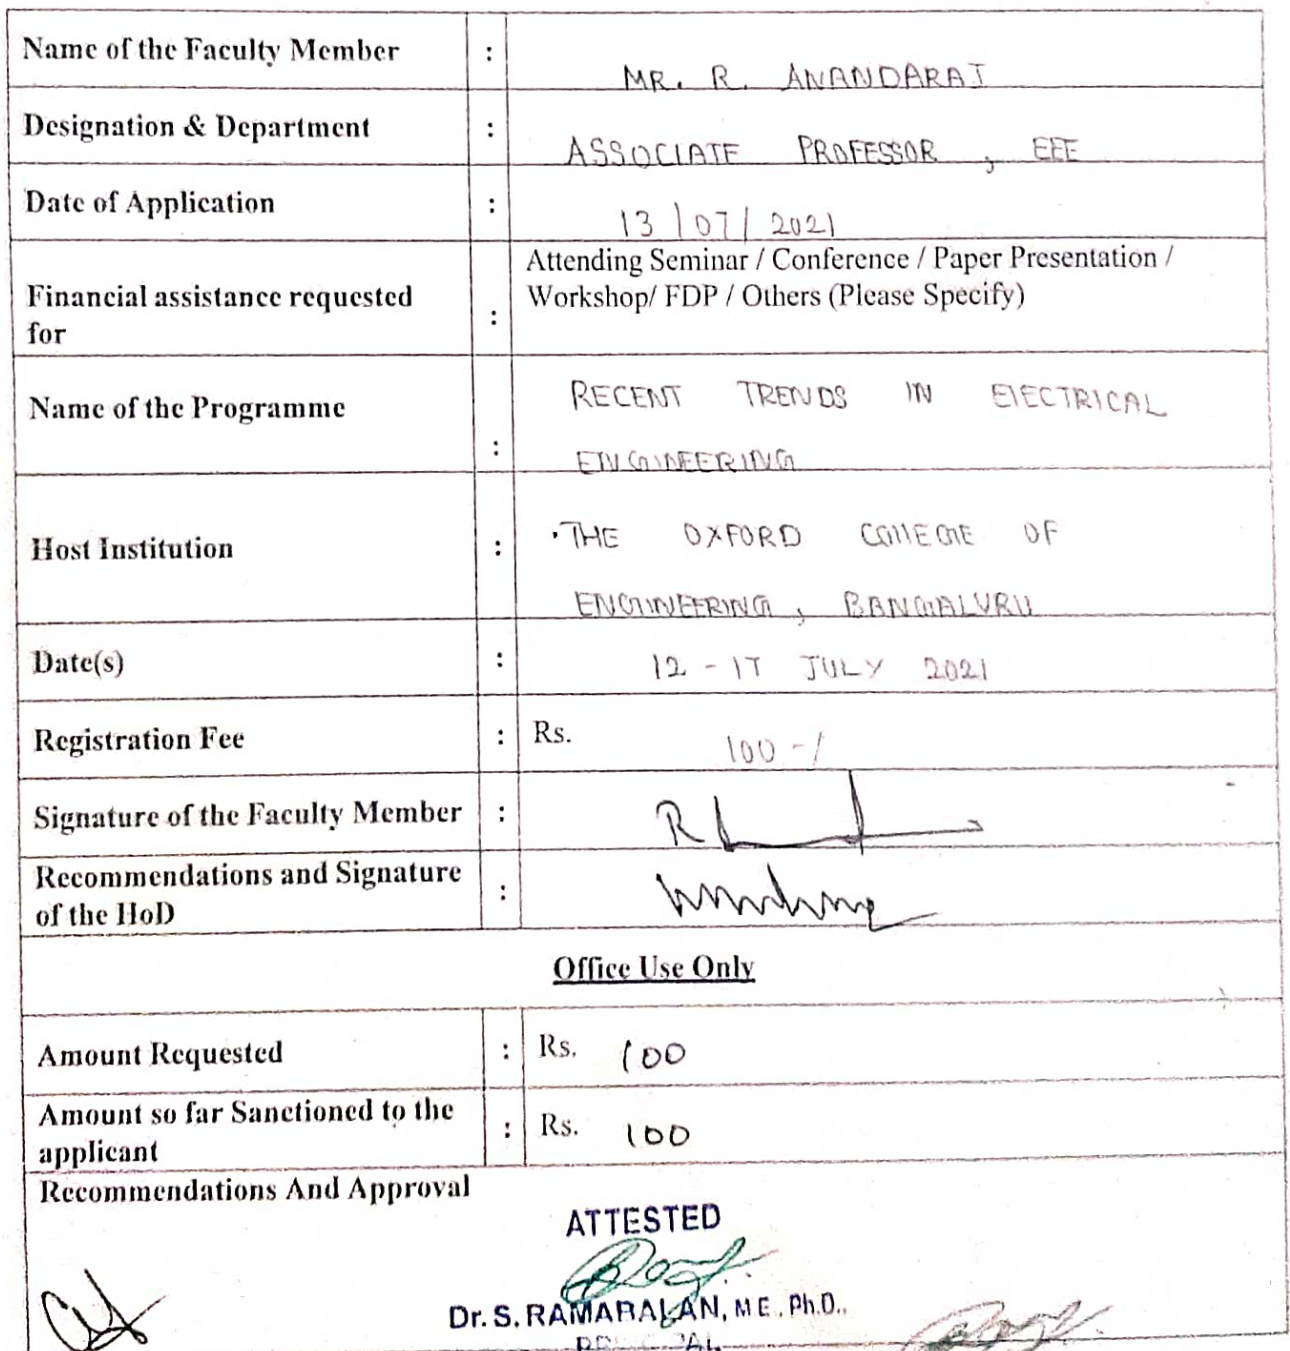 Name of the Faculty Member : MR. R. ANANDARAJ
Designation & Department : ASSOCIATE PROFESSOR, EEE
Date of Application : 13/07/2021
Financial assistance requested for : Attending Seminar / Conference / Paper Presentation /
Workshop/ FDP / Others (Please Specify)
Name of the Programme : RECENT TRENDS IN ELECTRICAL
ENGINEERING
Host Institution : THE OXFORD COLLEGE OF
ENGINEERING, BANGALURU
Date(s) : 12 - 17 JULY 2021
Registration Fee : Rs. 100 -/
Signature of the Faculty Member :
Recommendations and Signature
of the HoD :
Office Use Only
Amount Requested : Rs. 100
Amount so far Sanctioned to the
applicant : Rs. 100
Recommendations And Approval
ATTESTED
Dr. S. RAMABALAN, M.E., Ph.D.,